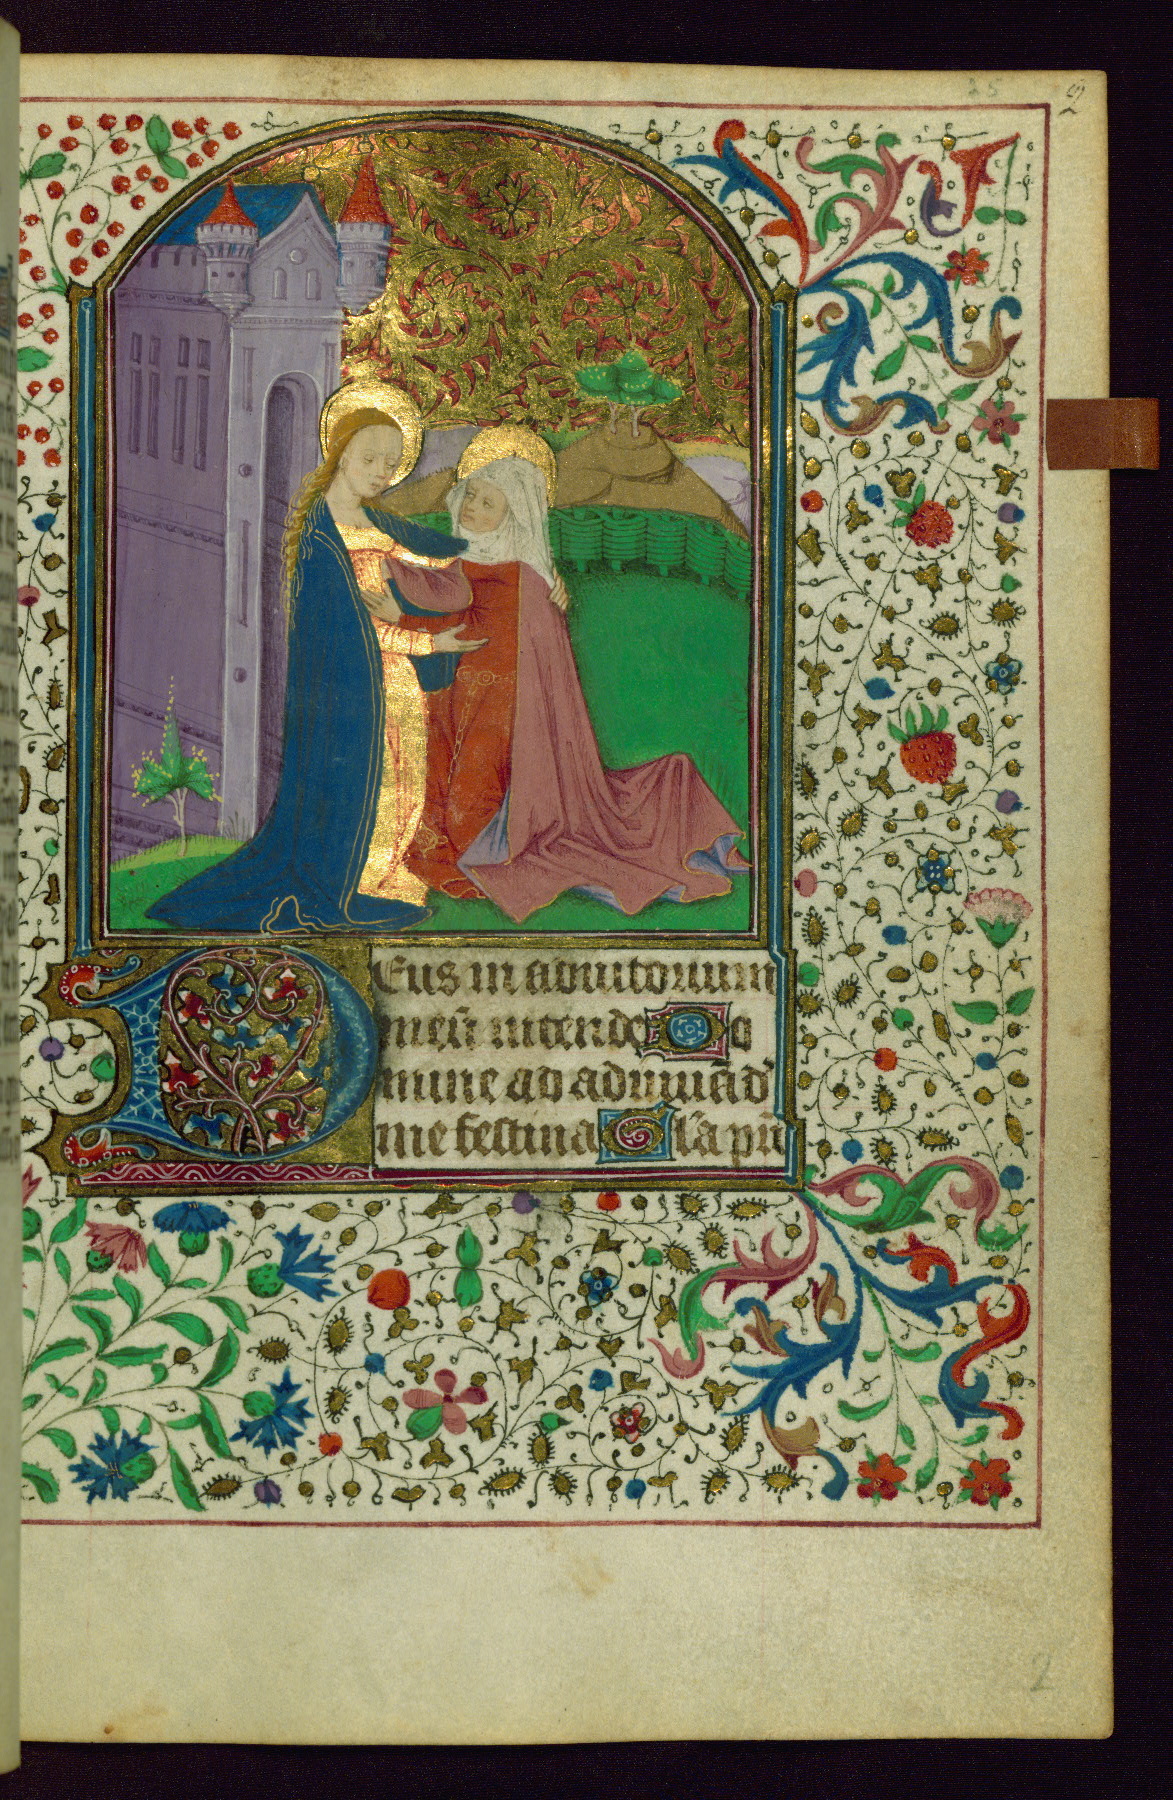 25 2
Deus in adiutorium
meū intende Do
mine ad adiuuād
me festina Gl̄a pr̄i
2